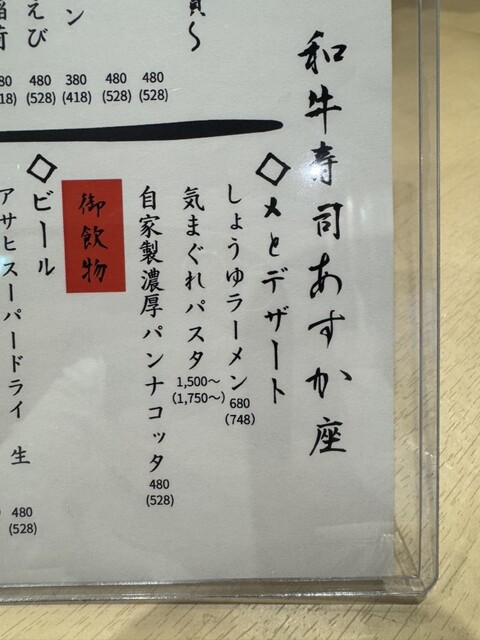 和牛寿司あすか座
貝〜
ン
えび
稲荷
480
(528)
480
(528)
380
(418)
480
(528)
◇〆とデザート
しょうゆラーメン
680
(748)
気まぐれパスタ
1,500〜
(1,750〜)
自家製濃厚パンナコッタ
480
(528)
御飲物
◇ビール
アサヒスーパードライ 生
480
(528)